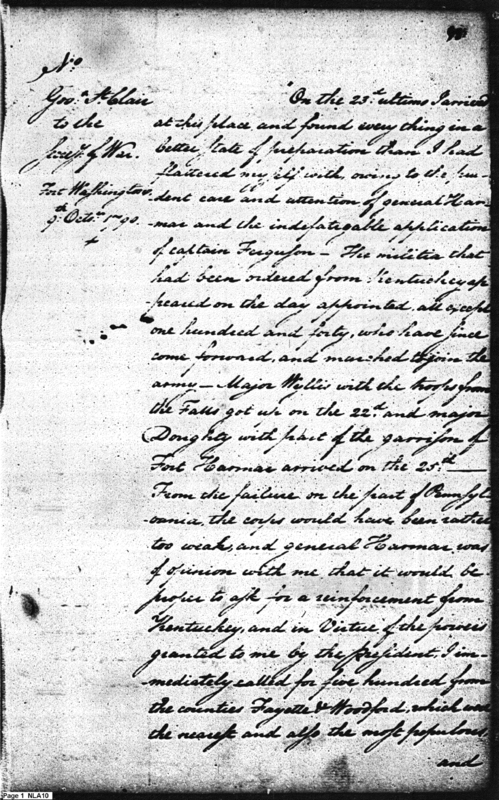 No
Govr. St. Clair
to the
Secry. of War.
Fort Washington
9th Octr. 1790.
+
"On the 23d. ultimo I arrived
at this place and found every thing in a
better state of preparation than I had
flattered myself with owing to the pru-
dent care and attention of general Har-
mar and the indefatigable application
of captain Ferguson — The militia that
had been ordered from Kentuckey ap
peared on the day appointed, all except
one hundred and forty, who have since
come forward, and marched to join the
army — Major Wyllis with the troops from
the Falls got up on the 22d. and major
Doughty with part of the garrison of
Fort Harmar arrived on the 25th. —
From the failure on the part of Pennsyl
vania, the corps would have been rather
too weak, and general Harmar was
of opinion with me, that it would be
proper to ask for a reinforcement from
Kentuckey, and in Virtue of the powers
granted to me by the President, I im-
mediately called for five hundred from
the counties Fayette & Woodford, which was
the nearest and also the most populous,
and
Page 1 NLA10